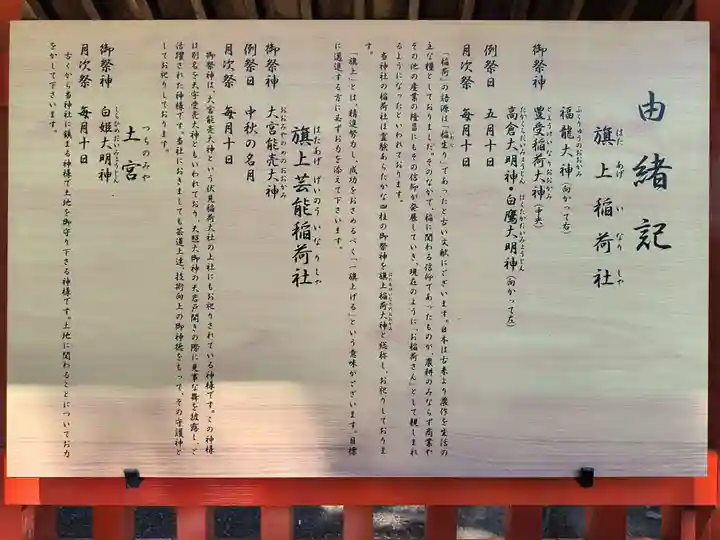 由緒記
旗上稲荷社
はたあげいなりしゃ
御祭神
福龍大神(向かって右)
ふくりゅうのおおかみ
豊受稲荷大神(中央)
とようけいなりおおかみ
高倉大明神・白鷹大明神(向かって左)
たかくらだいみょうじん はくたかだいみょうじん
例祭日 五月十日
月次祭 毎月十日
「稲荷」の語源は「稲生り」であったと古い文献にございます。日本は古来より農作を生活の
主な糧としておりました。そのなかで、稲に関わる信仰であったものが、農耕のみならず商業や
その他の産業の隆昌にもその信仰が発展していき、現在のように、「お稲荷さん」として親しまれ
るようになったといわれております。
当神社の稲荷社は霊験あらたかな四柱の御祭神を旗上稲荷大神と総称し、お祀りしておりま
す。
「旗上」とは、精進努力し、成功をおさめるべく「一旗上げる」という意味がございます。目標
に邁進する方に必ずお力を添えて下さいます。
旗上芸能稲荷社
はたあげ げいのう いなりしゃ
御祭神 大宮能売大神
おおみやのめのおおかみ
例祭日 中秋の名月
月次祭 毎月十日
御祭神は、大宮能売大神という伏見稲荷大社の上社にもお祀りされている神様です。この神様
は別名を天宇受売大神ともいわれており、天照大御神の天岩戸開きの際に見事な舞を披露し、ご
活躍された神様です。当社におきましても芸道上達、技術向上の御神徳をもって、その守護神と
してお祀りしております。
土宮
つちのみや
御祭神 白姫大明神
しらひめだいみょうじん
月次祭 毎月十日
古くから当神社に鎮まる神様で土地を御守り下さる神様です。土地に関わることについてお力
をかして下さいます。